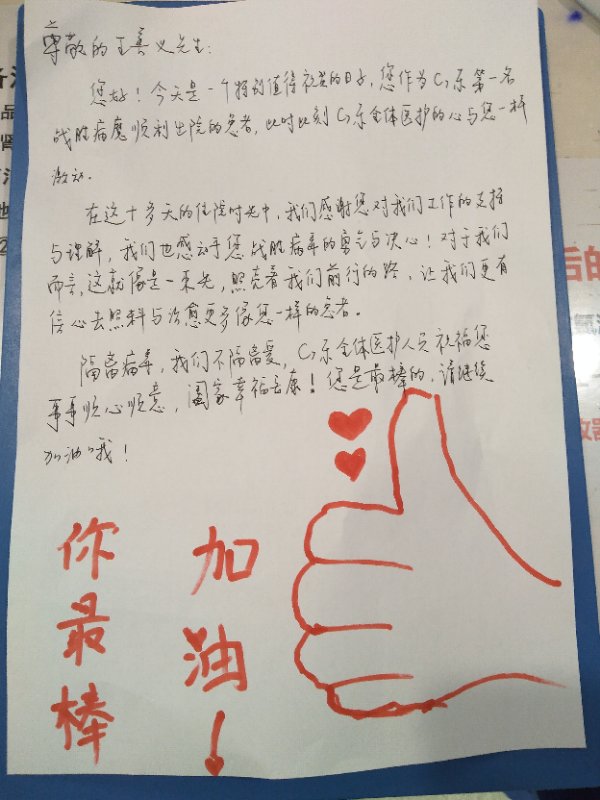 尊敬的王善义先生：
您好！今天是一个特别值得祝贺的日子，您作为C7东第一名
战胜病魔顺利出院的患者，此时此刻C7东全体医护的心与您一样
激动。
在这十多天的住院时光中，我们感谢您对我们工作的支持
与理解，我们也感动于您战胜病毒的勇气与决心！对于我们
而言，这就像是一束光，照亮着我们前行的路，让我们更有
信心去照料与治愈更多像您一样的患者。
隔离病毒，我们不隔离爱，C7东全体医护人员祝福您
事事顺心顺意，阖家幸福安康！您是最棒的，请继续
加油哦！
你最棒
加油！
后的